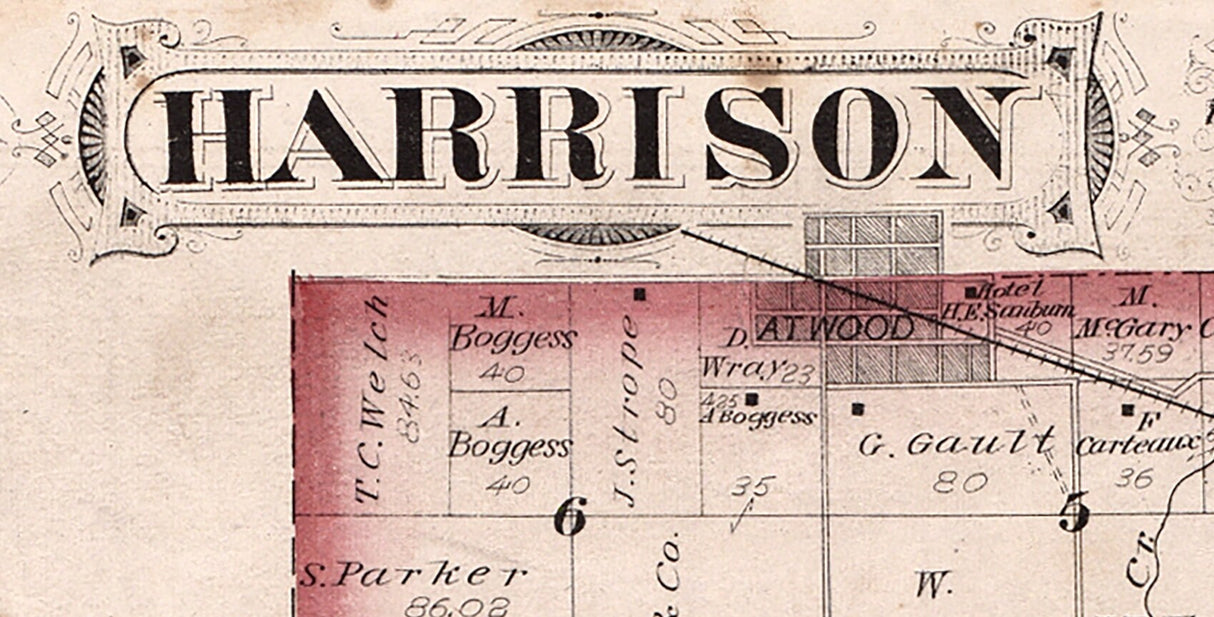 HARRISON
T.C. Welch
84.63
M.
Boggess
40
A.
Boggess
40
J. Strope
80
D.
Wray 23
ATWOOD
Hotel
H.E. Sanburn
40
M.
McGary
37.59
A Boggess
35
G. Gault
80
F
Carteaux
36
6
5
S. Parker
86.02
& Co.
W.
Cr.